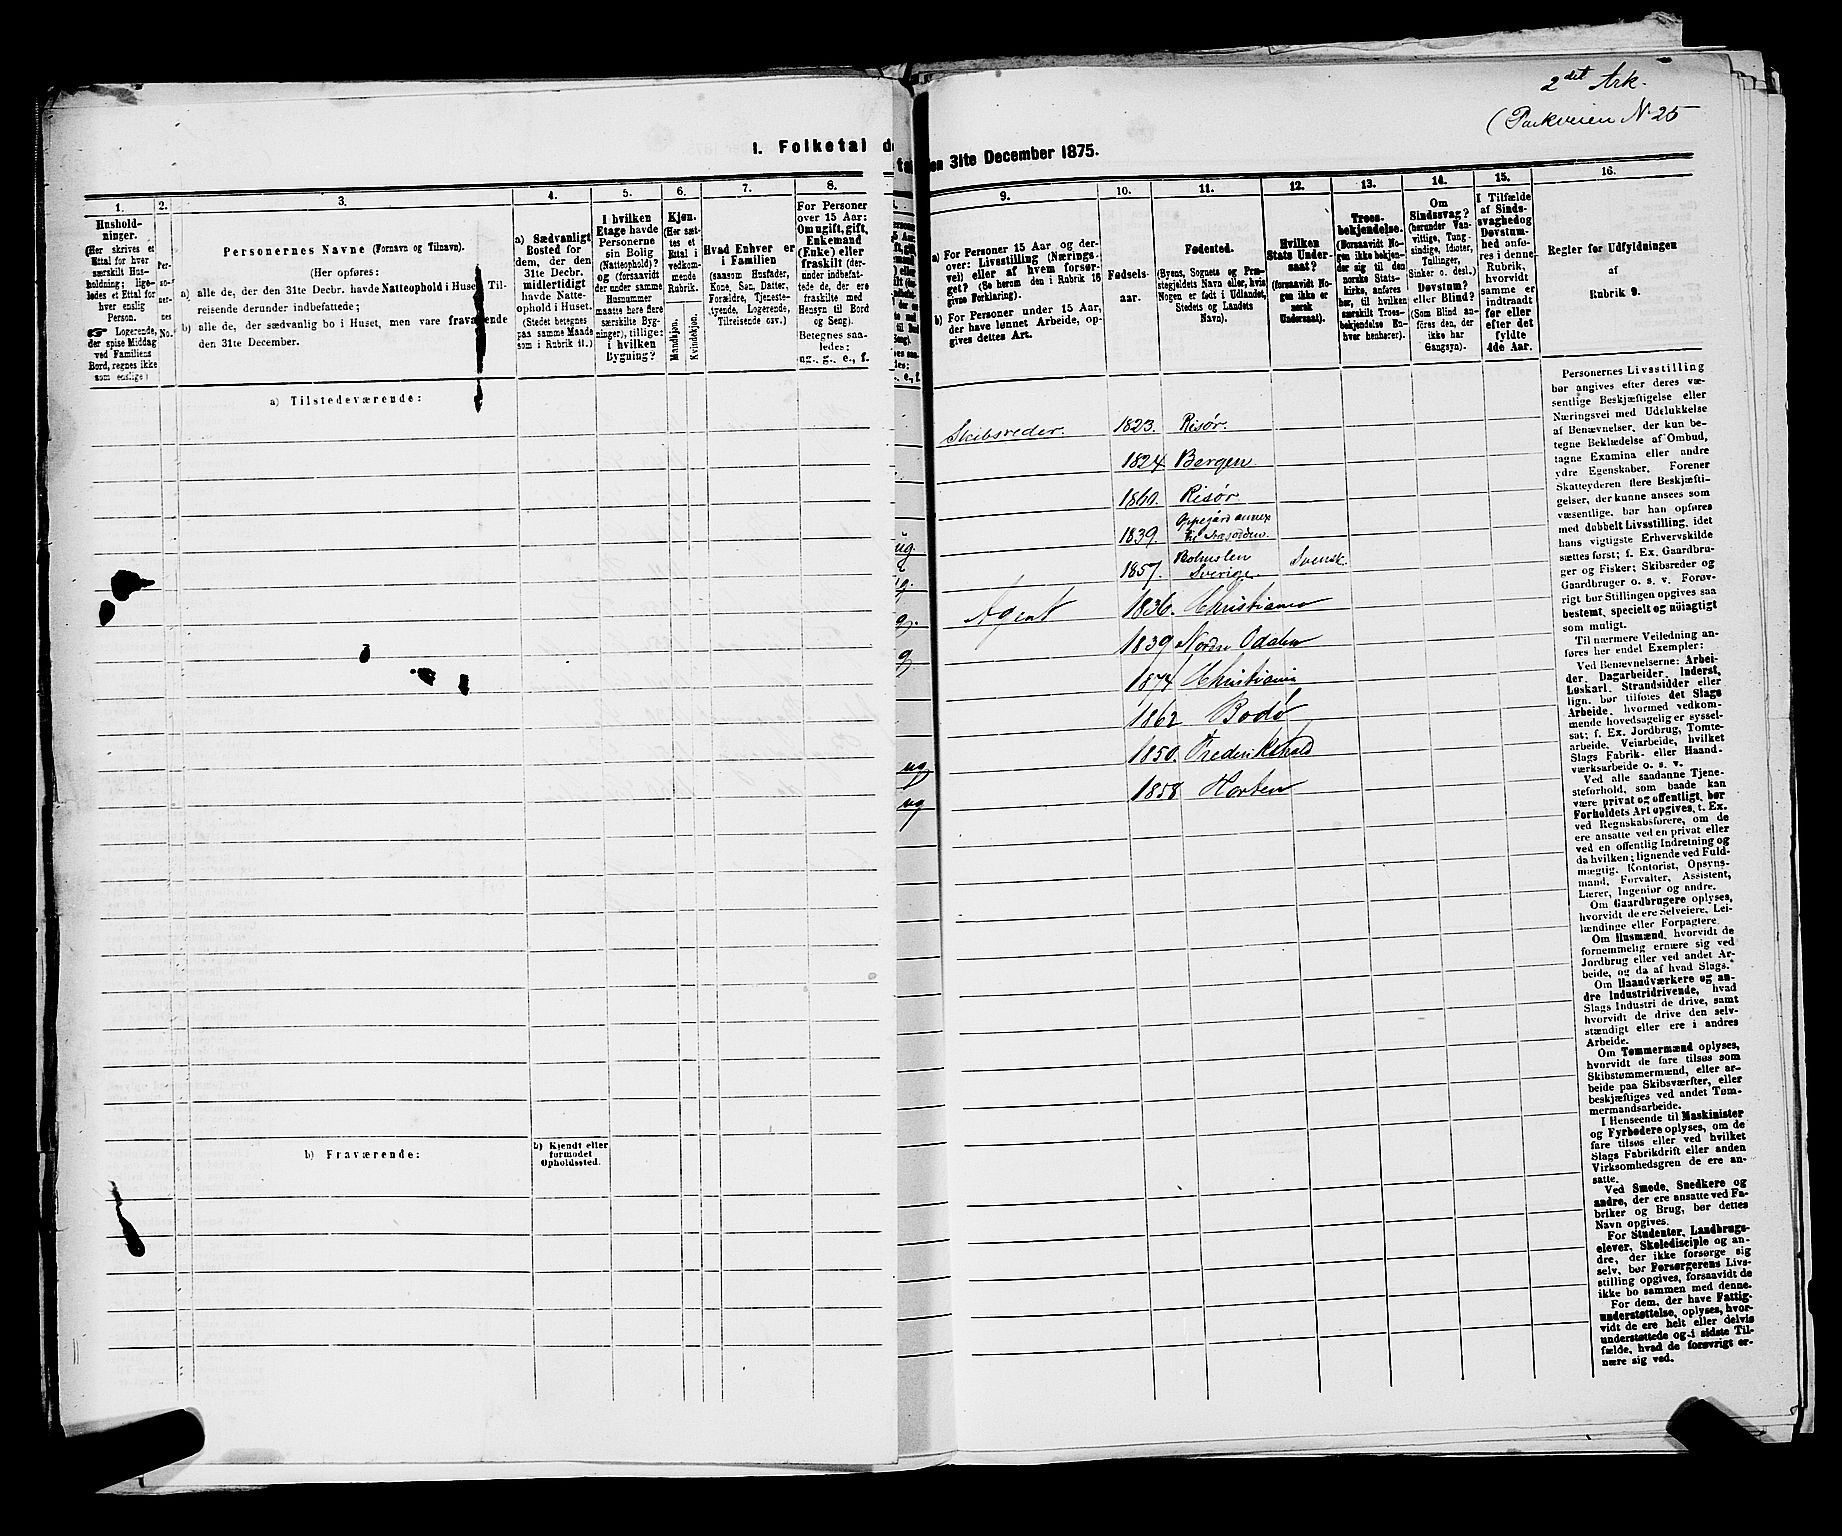 2det Ark.
(Parkveien N. 25
1. Folketal d
en 31te December 1875.
1.
Hushold-
ninger.
(Her skrives et
Ettal for hver
særskilt Hus-
holdning; lige-
ledes et Ettal for
hver enslig
Person.
Logerende,
der spise Middag
ved Familiens
Bord, regnes ikke
som enslige)
2.
Per-
so-
ner-
nes
No.
3.
Personernes Navne (Fornavn og Tilnavn).
(Her opføres:
a) alle de, der den 31te Decbr. havde Natteophold i Huset, Til-
reisende derunder indbefattede;
b) alle de, der sædvanlig bo i Huset, men vare fraværende
den 31te December.
4.
a) Sædvanligt
Bosted for
dem, der den
31te Decbr.
midlertidigt
havde Natte-
ophold i Huset.
(Stedet betegnes
paa samme Maade
som i Rubrik 11.)
5.
I hvilken
Etage havde
Personerne
sin Bolig
(Natteophold)?
og (forsaavidt
der under samme
Husnummer
maatte høre flere
særskilte Byg-
ninger), tillige:
i hvilken
Bygning?
6.
Kjøn.
(Her sæt-
tes et
Ettal i
vedkom-
mende
Rubrik.
Mandkjøn.
Kvindekjøn.
7.
Hvad Enhver er
i Familien
(saasom Husfader,
Kone, Søn, Datter,
Forældre, Tjeneste-
tyende, Logerende,
Tilreisende osv.)
8.
For Personer
over 15 Aar:
Om ugift, gift,
Enkemand
(Enke) eller
fraskilt (der-
under indbefat-
tede de, der ere
fraskilte med
Hensyn til Bord
og Seng).
Betegnes saa-
ledes:
ug. g. e., f.
a) Tilstedeværende:
b) Fraværende:
b) Kjendt eller
formodet
Opholdssted.
9.
a) For Personer 15 Aar og der-
over: Livsstilling (Nærings-
vei) eller af hvem forsør-
get (Se herom den i Rubrik 16
givne Forklaring).
b) For Personer under 15 Aar,
der have lønnet Arbeide, op-
gives dettes Art.
10.
Fødsels-
aar.
11.
Fødested.
(Byens, Sognets og Præ-
stegjeldets Navn eller, hvis
Nogen er født i Udlandet,
Stedets og Landets
Navn).
12.
Hvilken
Stats Under-
saat?
(forsaavidt No-
gen ikke er
norsk
Undersaat).
13.
Troes-
bekjendelse.
(Forsaavidt No-
gen ikke bekjen-
der sig til den
norske Stats-
kirke, anføres
her, til hvilken
særskilt Troes-
bekjendelse En-
hver henhører).
14.
Om
Sindssvag?
(herunder Van-
vittige, Tung-
sindige, Idioter,
Tullinger,
Sinker o. desl.)
Døvstum?
eller Blind?
(Som Blind an-
føres den, der
ikke har
Gangsyn).
15.
I Tilfælde
af Sinds-
svaghed og
Døvstum-
hed anfø-
res i denne
Rubrik,
hvorvidt
samme er
indtraadt
før eller
efter det
fyldte
4de Aar.
16.
Regler for Udfyldningen
af
Rubrik 9.
Skibsreder. 1823. Risør.
1824 Bergen.
1860. Risør.
ug. 1839. Oppegård annex til Næsodden.
ug. 1857. Bohuslen Sverige. Svensk.
g. Agent 1836. Christiania
g 1839 Nordre Odalen
1874 Christiania
1862 Bodø
ug 1850. Frederikshald
ug 1858 Horten
Personernes Livsstilling
bør angives efter deres væ-
sentlige Beskjæftigelse eller
Næringsvei med Udelukkelse
af Benævnelser, der kun be-
tegne Beklædelse af Ombud,
tagne Examina eller andre
ydre Egenskaber. Forener
Skatteyderen flere Beskjæfti-
gelser, der kunne ansees som
væsentlige, bør han opføres
med dobbelt Livsstilling, idet
hans vigtigste Erhvervskilde
sættes først; f. Ex. Gaardbru-
ger og Fisker; Skibsreder og
Gaardbruger o. s. v. Forøv-
rigt bør Stillingen opgives saa
bestemt, specielt og nøiagtigt
som muligt.
Til nærmere Veiledning an-
føres her endel Exempler:
Ved Benævnelserne: Arbei-
der, Dagarbeider, Inderst,
Løskarl, Strandsidder eller
lign. bør tilføies det Slags
Arbeide, hvormed vedkom-
mende hovedsagelig er syssel-
sat; f. Ex. Jordbrug, Tomte-
arbeide, Veiarbeide, hvilket
Slags Fabrik- eller Haand-
værksarbeide o. s. v.
Ved alle saadanne Tjene-
steforhold, som baade kan
være privat og offentligt, bør
Forholdets Art opgives, t. Ex.
ved Regnskabsførere, om de
ere ansatte ved en privat eller
ved en offentlig Indretning og
da hvilken; lignende ved Fuld-
mægtig, Kontorist, Opsyns-
mand, Forvalter, Assistent,
Lærer, Ingeniør og andre.
Om Gaardbrugere oplyses,
hvorvidt de ere Selveiere, Lei-
lændinge eller Forpagtere.
Om Husmænd, hvorvidt de
fornemmelig ernære sig ved
Jordbrug eller ved andet Ar-
beide, og da af hvad Slags.
Om Haandværkere og an-
dre Industridrivende, hvad
Slags Industri de drive, samt
hvorvidt de drive den selv-
stændigt eller ere i andres
Arbeide.
Om Tømmermænd oplyses,
hvorvidt de fare tilsøs som
Skibstømmermænd, eller ar-
beide paa Skibsværfter, eller
beskjæftiges ved andet Tøm-
mermandsarbeide.
I Henseende til Maskinister
og Fyrbødere oplyses, om de
fare tilsøs eller ved hvilket
Slags Fabrikdrift eller anden
Virksomhedsgren de ere an-
satte.
Ved Smede, Snedkere og
andre, der ere ansatte ved Fa-
briker og Brug, bør dettes
Navn opgives.
For Studenter, Landbrugs-
elever, Skoledisciple og an-
dre, der ikke forsørge sig
selv, bør Forsørgerens Livs-
stilling opgives, forsaavidt de
ikke bo sammen med denne.
For dem, der have Fattig-
understøttelse, oplyses, hvor-
vidt de ere helt eller delvis
understøttede og i sidste Til-
fælde, hvad de forøvrigt er-
nære sig ved.